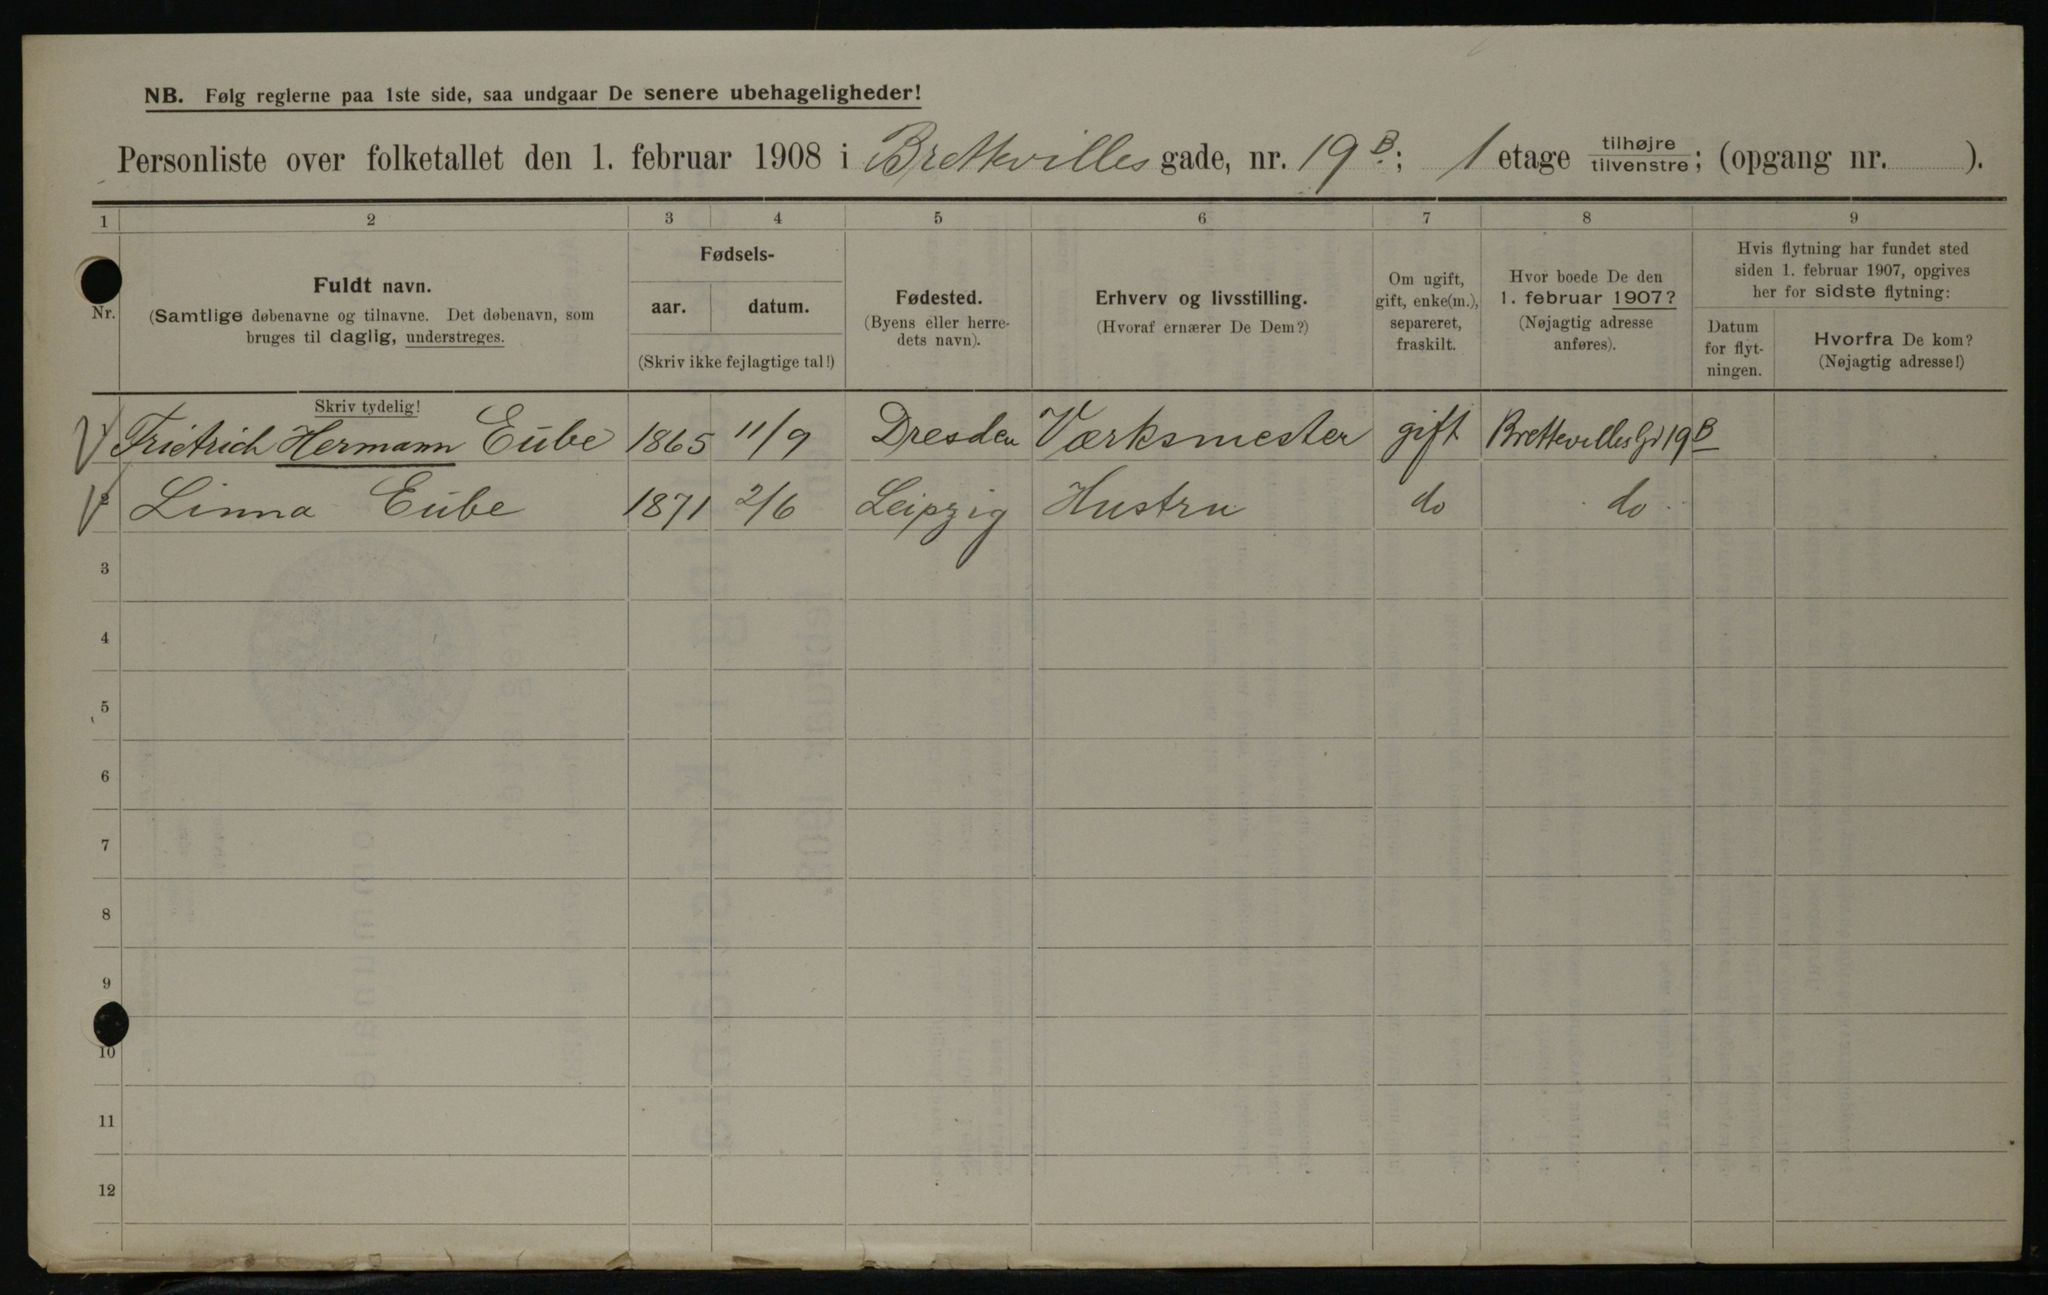 NB. Følg reglerne paa 1ste side, saa undgaar De senere ubehageligheder!
Personliste over folketallet den 1. februar 1908 i Brettevilles gade, nr. 19 B.; 1 etage tilhøjre/tilvenstre; (opgang nr. ).
1 2 3 4 5 6 7 8 9
Nr.
Fuldt navn.
(Samtlige døbenavne og tilnavne. Det døbenavn, som
bruges til daglig, understreges.
Skriv tydelig!
Fødsels-
aar. datum.
(Skriv ikke fejlagtige tal!)
Fødested.
(Byens eller herre-
dets navn).
Erhverv og livsstilling.
(Hvoraf ernærer De Dem?)
Om ugift,
gift, enke(m.),
separeret,
fraskilt.
Hvor boede De den
1. februar 1907?
(Nøjagtig adresse
anføres).
Hvis flytning har fundet sted
siden 1. februar 1907, opgives
her for sidste flytning:
Datum
for flyt-
ningen.
Hvorfra De kom?
(Nøjagtig adresse!)
Frietrich Hermann Eube 1865 11/9 Dresden Værksmester gift Brettevilles Gd 19 B
2 Linna Eube 1871 2/6 Leipzig Hustru do do
3
4
5
6
7
8
9
10
11
12